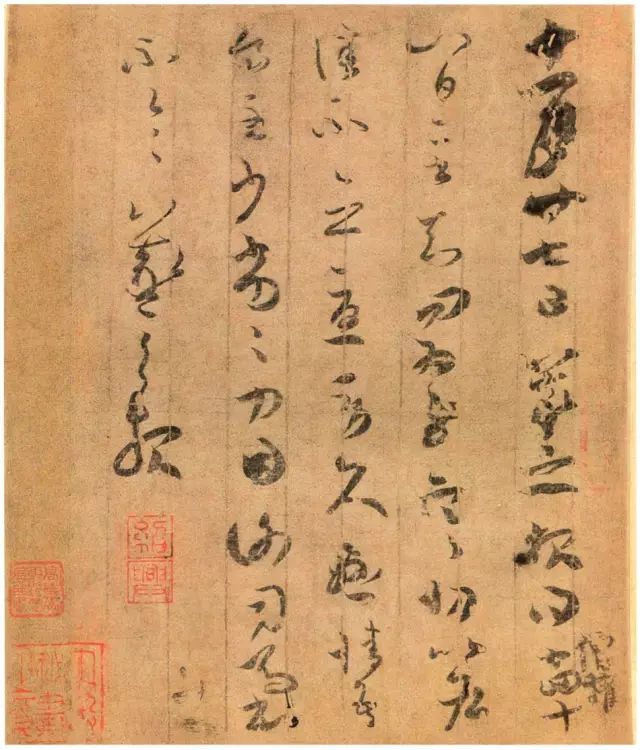 十一月廿七日羲之報得十四十
八日二書知問為慰寒切比各
佳不念憂勞久懸情吾
食甚少劣劣力因謝司馬書
不一一羲之報
僧權
紹興